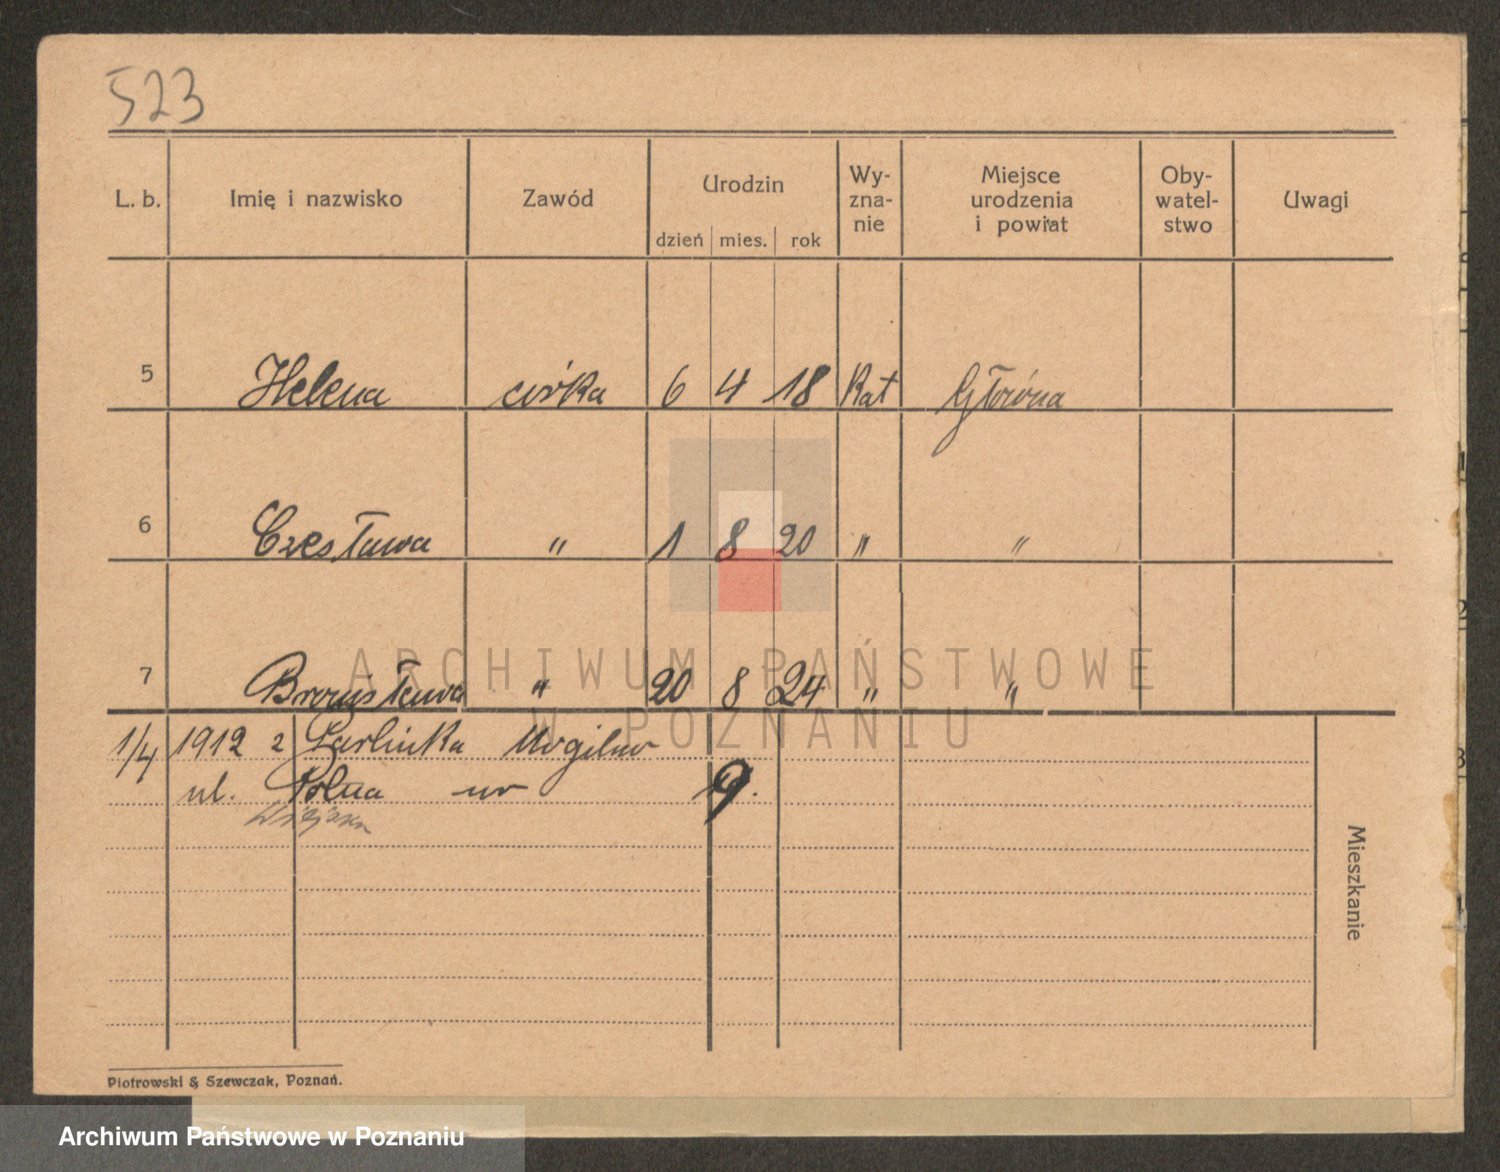 523
L. b. Imię i nazwisko Zawód Urodzin Wy-zna-nie Miejsce urodzenia i powiat Oby-watel-stwo Uwagi
dzień mies. rok
5 Helena córka 6 4 18 Kat Główna
6 Czesława " 1 8 20 " "
7 Bronisława " 20 8 24 " "
ARCHIWUM PAŃSTWOWE
W POZNANIU
1/4 1912 z Mogilno
ul. Polna nr 9.
Wiejska
Mieszkanie
Piotrowski & Szewczak, Poznań.
Archiwum Państwowe w Poznaniu